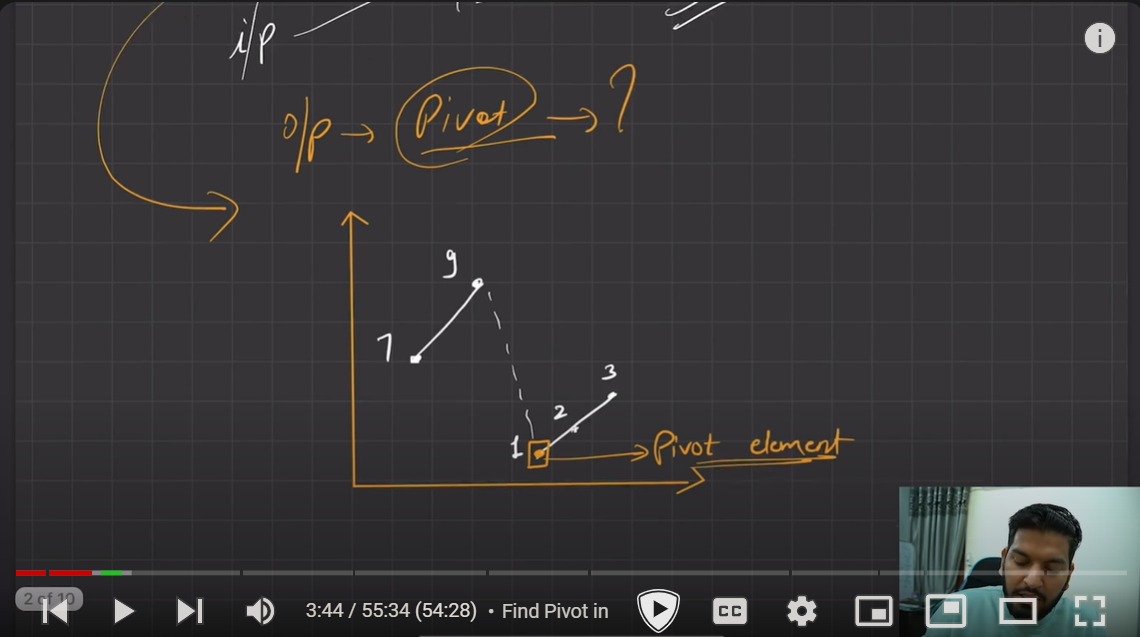 i/p
i
o/p → Pivot → ?
9
7
3
2
1
Pivot element
2 of 10
3:44 / 55:34 (54:28) • Find Pivot in
CC